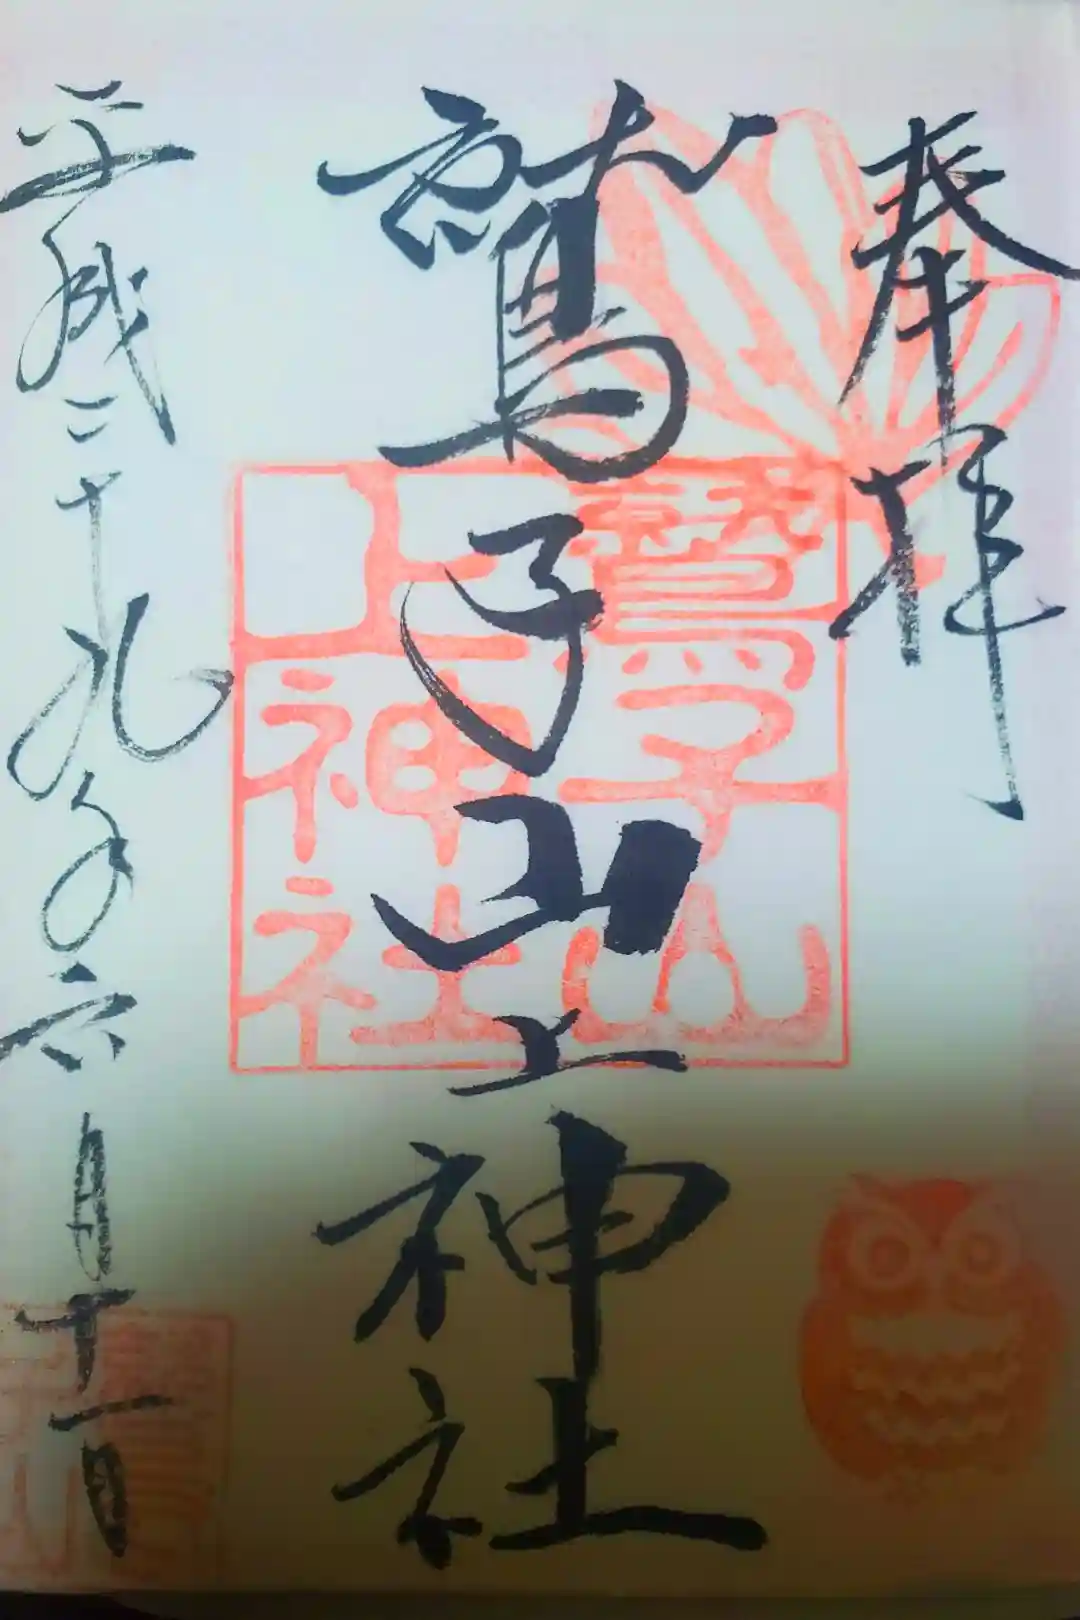 奉拝
鷲子山上神社
平成二十九年六月十一日
鷲子山
上神社